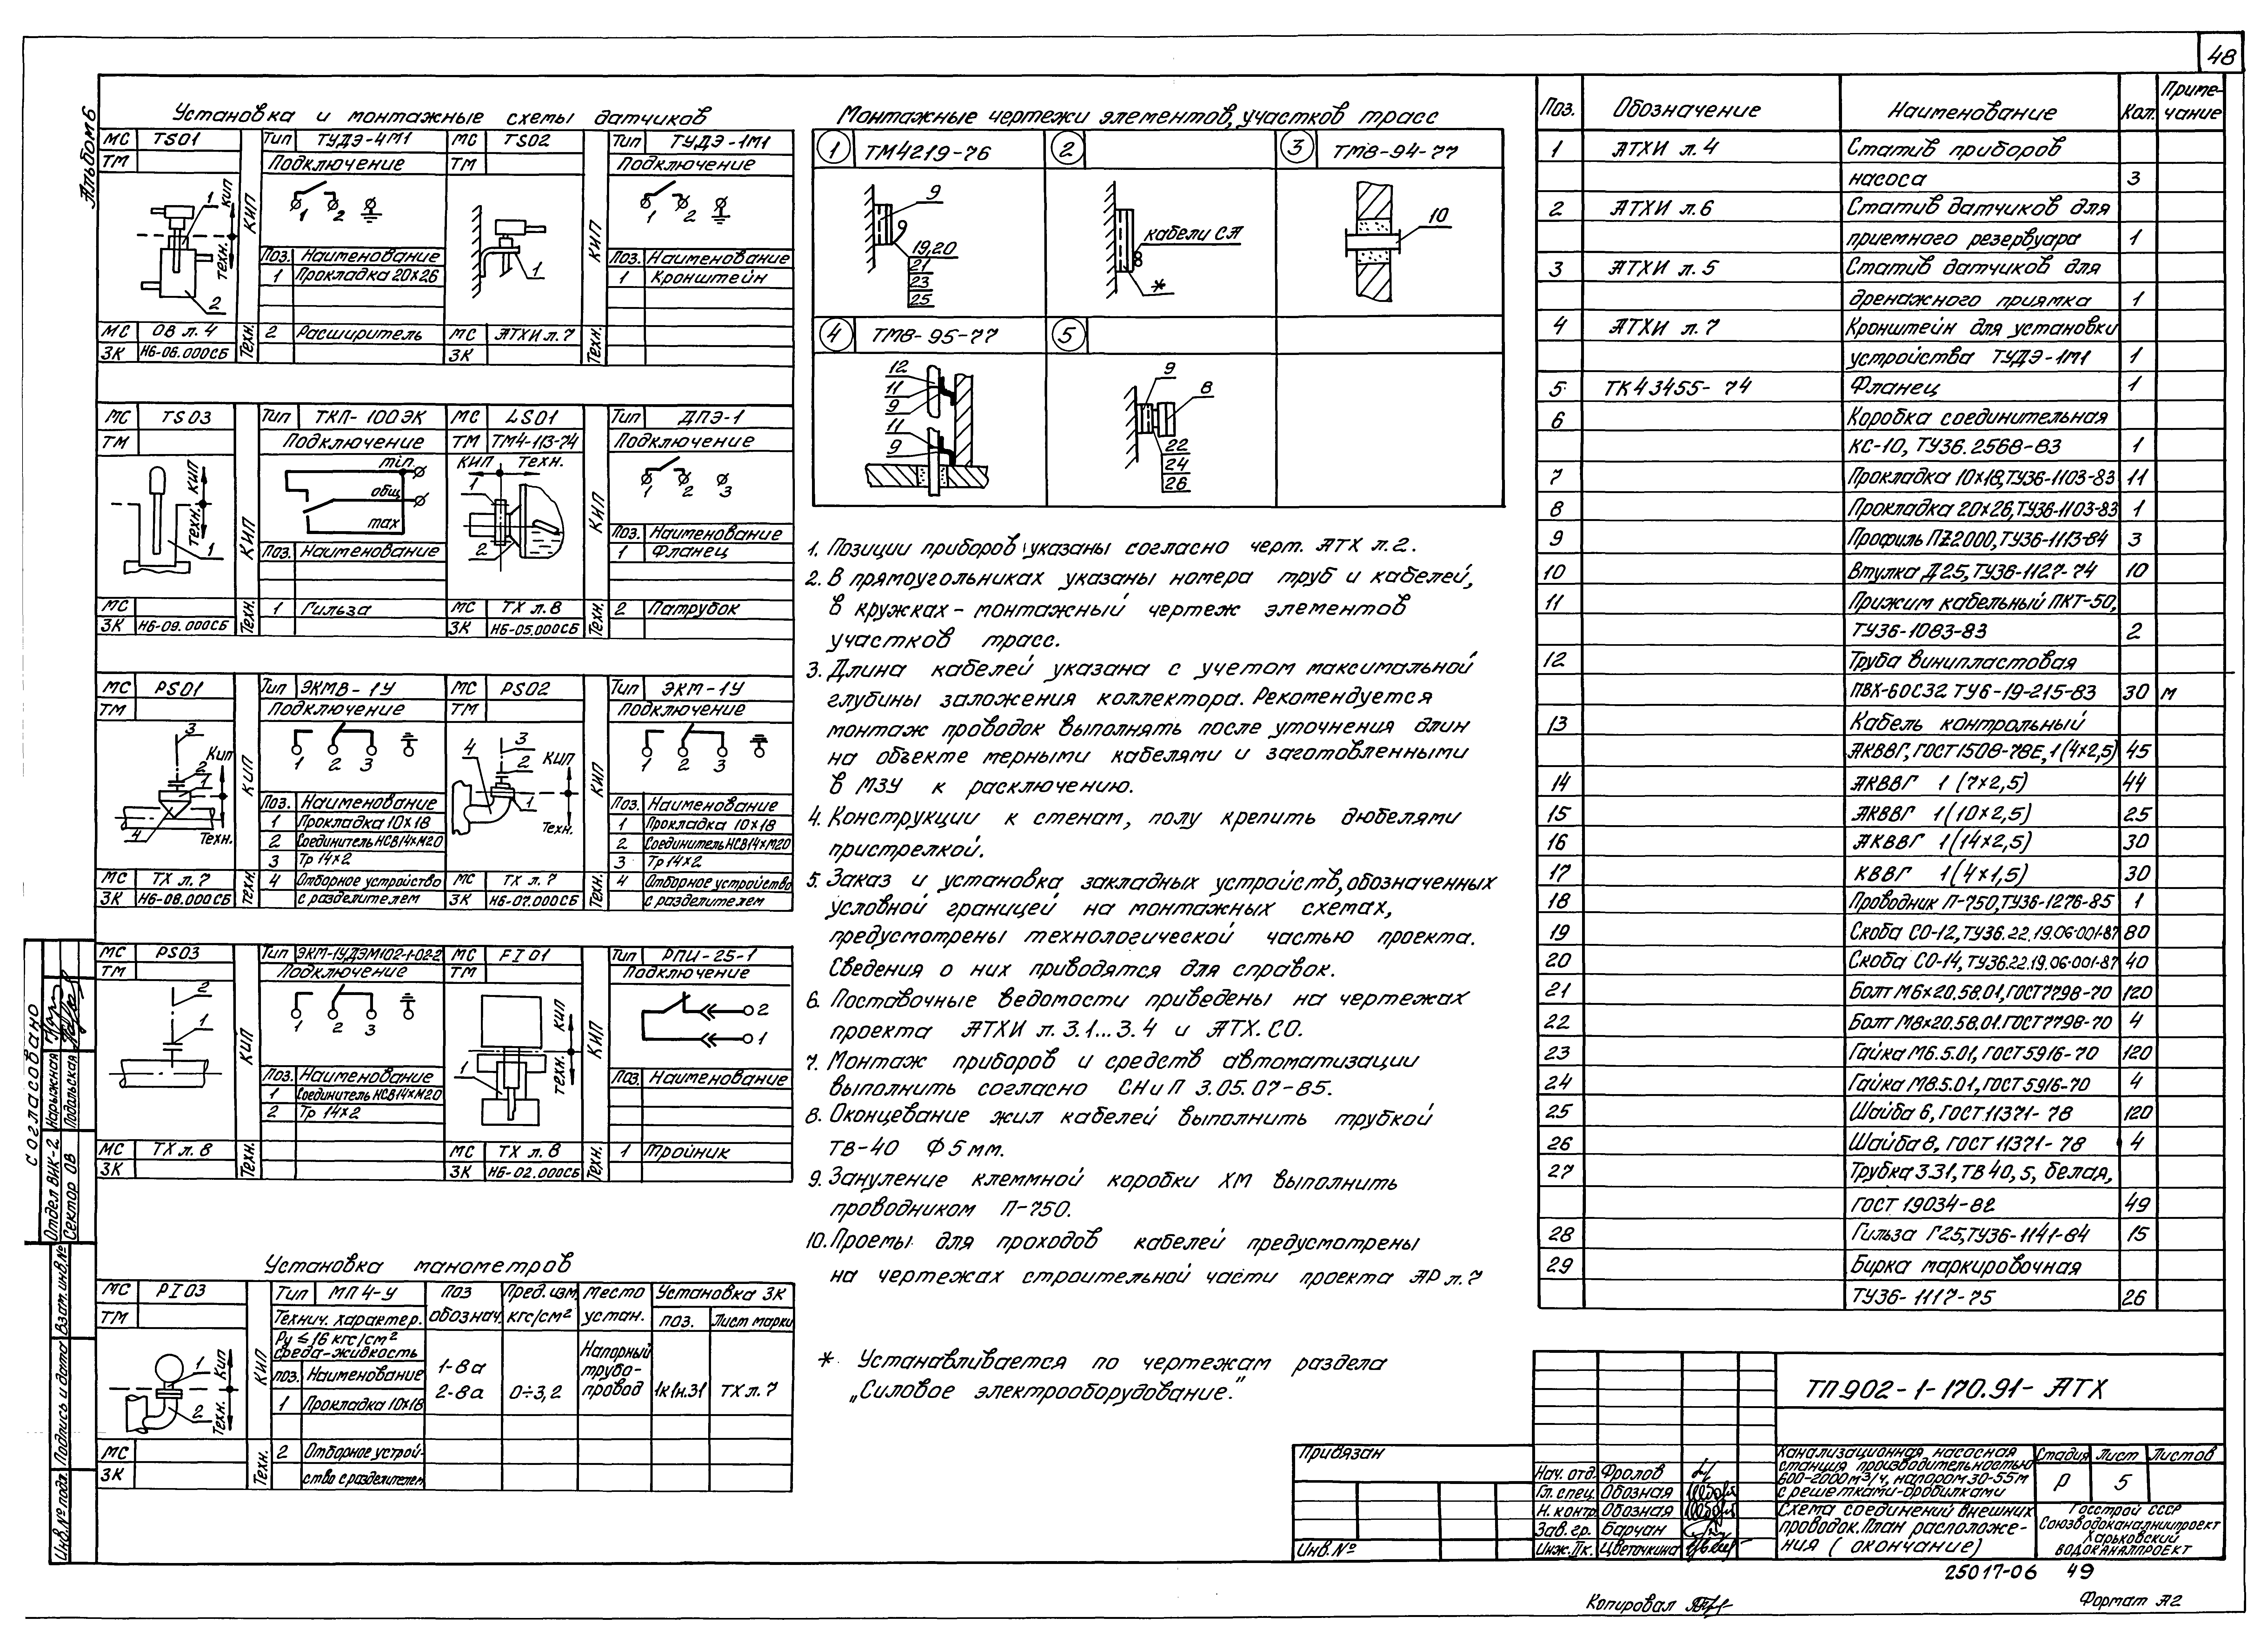 48
Альбом 6
Установка и монтажные схемы датчиков
МС TS01 Тип ТУДЭ-4М1 МС TS02 Тип ТУДЭ-1М1
ТМ Подключение ТМ Подключение
1 КИП КИП КИП
1 2 1 2
Техн. 2 1
Поз. Наименование Поз. Наименование
1 Прокладка 20х26 1 Кронштейн
МС ОВ л. 4 Техн. 2 Расширитель МС АТХИ л. 7 Техн.
ЗК Н6-06.000СБ ЗК
МС TS03 Тип ТКП-100ЭК МС LS01 Тип ДПЭ-1
ТМ Подключение ТМ ТМ4-113-74 Подключение
КИП Техн. 1 КИП min. общ. max КИП Техн. 1 2 КИП 1 2 3
Поз. Наименование Поз. Наименование
1 Фланец
МС Техн. 1 Гильза МС ТХ л. 8 Техн. 2 Патрубок
ЗК Н6-09.000СБ ЗК Н6-05.000СБ
МС PS01 Тип ЭКМВ-1У МС PS02 Тип ЭКМ-1У
ТМ Подключение ТМ Подключение
3 Кип 2 1 4 Техн. КИП 1 2 3 4 3 2 КИП 1 Техн. КИП 1 2 3
Поз. Наименование Поз. Наименование
1 Прокладка 10х18 1 Прокладка 10х18
2 Соединитель НСВ14хМ20 2 Соединитель НСВ14хМ20
3 Тр 14х2 3 Тр 14х2
МС ТХ л. 7 Техн. 4 Отборное устройство МС ТХ л. 7 Техн. 4 Отборное устройство
ЗК Н6-08.000СБ с разделителем ЗК Н6-07.000СБ с разделителем
МС PS03 Тип ЭКМ-1УДЭМ102-1-02-2 МС FI01 Тип РПИ-25-1
ТМ Подключение ТМ Подключение
2 1 КИП 1 2 3 КИП Техн. 1 КИП 2 1
Поз. Наименование Поз. Наименование
1 Соединитель НСВ14хМ20
2 Тр 14х2
МС ТХ л. 8 Техн. МС ТХ л. 8 Техн. 1 Тройник
ЗК ЗК Н6-02.000СБ
Установка манометров
МС PI03 Тип МП4-У Поз обознач. Пред. изм. кгс/см² Место устан. Установка ЗК
ТМ Технич. характер. поз. Лист марки
Ру ≤ 16 кгс/см²
среда-жидкость
поз. Наименование
1 Прокладка 10х18
1-8а
2-8а 0÷3,2 Напорный трубо-провод 1к1н.31 ТХ л. 7
1 Кип 2 Техн. КИП
МС Техн. 2 Отборное устрой-
ЗК ство с разделителем
Монтажные чертежи элементов, участков трасс
1 ТМ4219-76 2 3 ТМ8-94-77
9 19,20 21 23 25
кабели СП *
10
4 ТМ8-95-77 5
12 11 9 11 9
9 8 22 24 26
1. Позиции приборов указаны согласно черт. АТХ л. 2.
2. В прямоугольниках указаны номера труб и кабелей,
в кружках - монтажный чертеж элементов
участков трасс.
3. Длина кабелей указана с учетом максимальной
глубины заложения коллектора. Рекомендуется
монтаж проводок выполнять после уточнения длин
на объекте мерными кабелями и заготовленными
в МЗУ к расключению.
4. Конструкции к стенам, полу крепить дюбелями
пристрелкой.
5. Заказ и установка закладных устройств, обозначенных
условной границей на монтажных схемах,
предусмотрены технологической частью проекта.
Сведения о них приводятся для справок.
6. Поставочные ведомости приведены на чертежах
проекта АТХИ л. 3.1...3.4 и АТХ.СО.
7. Монтаж приборов и средств автоматизации
выполнить согласно СНиП 3.05.07-85.
8. Оконцевание жил кабелей выполнить трубкой
ТВ-40 Ф5мм.
9. Зануление клеммной коробки ХМ выполнить
проводником П-750.
10. Проемы для проходов кабелей предусмотрены
на чертежах строительной части проекта АР л. 7
* Устанавливается по чертежам раздела
„Силовое электрооборудование."
Поз. Обозначение Наименование Кол. Приме-чание
1 АТХИ л. 4 Статив приборов
насоса 3
2 АТХИ л. 6 Статив датчиков для
приемного резервуара 1
3 АТХИ л. 5 Статив датчиков для
дренажного приямка 1
4 АТХИ л. 7 Кронштейн для установки
устройства ТУДЭ-1М1 1
5 ТК43455-74 Фланец 1
6 Коробка соединительная
КС-10, ТУ36.2568-83 1
7 Прокладка 10х18, ТУ36-1103-83 11
8 Прокладка 20х26, ТУ36-1103-83 1
9 Профиль ПZ2000, ТУ36-1113-84 3
10 Втулка Д25, ТУ36-1127-74 10
11 Прижим кабельный ПКТ-50,
ТУ36-1083-83 2
12 Труба винипластовая
ПВХ-60С32 ТУ6-19-215-83 30 м
13 Кабель контрольный
АКВВГ, ГОСТ 1508-78Е, 1(4х2,5) 45
14 АКВВГ 1 (7х2,5) 44
15 АКВВГ 1(10х2,5) 25
16 АКВВГ 1(14х2,5) 30
17 КВВГ 1(4х1,5) 30
18 Проводник П-750, ТУ36-1276-85 1
19 Скоба СО-12, ТУ36.22.19.06-001-87 80
20 Скоба СО-14, ТУ36.22.19.06-001-87 40
21 Болт М6х20.58.01, ГОСТ 7798-70 120
22 Болт М8х20.58.01. ГОСТ 7798-70 4
23 Гайка М6.5.01, ГОСТ 5916-70 120
24 Гайка М8.5.01, ГОСТ 5916-70 4
25 Шайба 6, ГОСТ 11371-78 120
26 Шайба 8, ГОСТ 11371-78 4
27 Трубка 3.31, ТВ 40, 5, белая,
ГОСТ 19034-82 49
28 Гильза Г25, ТУ36-1141-84 15
29 Бирка маркировочная
ТУ36-1117-75 26
ТП.902-1-170.91-АТХ
Привязан
Инв.№
Нач. отд. Фролов
Гл. спец. Обозная
Н. контр. Обозная
Зав. гр. Барчан
Инж. IIк. Цветочкина
Канализационная насосная
станция производительностью
600-2000 м³/ч, напором 30-55м
с решетками-дробилками
Стадия Лист Листов
Р 5
Схема соединений внешних
проводок. План расположе-
ния (окончание)
Госстрой СССР
Союзводоканалниипроект
Харьковский
водоканалпроект
25017-06 49
Копировал
Формат А2
Согласовано
Отдел ВИК-2 Нарыжная
Сектор ОВ Подольская
Взат. инв.№
Подпись и дата
Инв.№ подл.